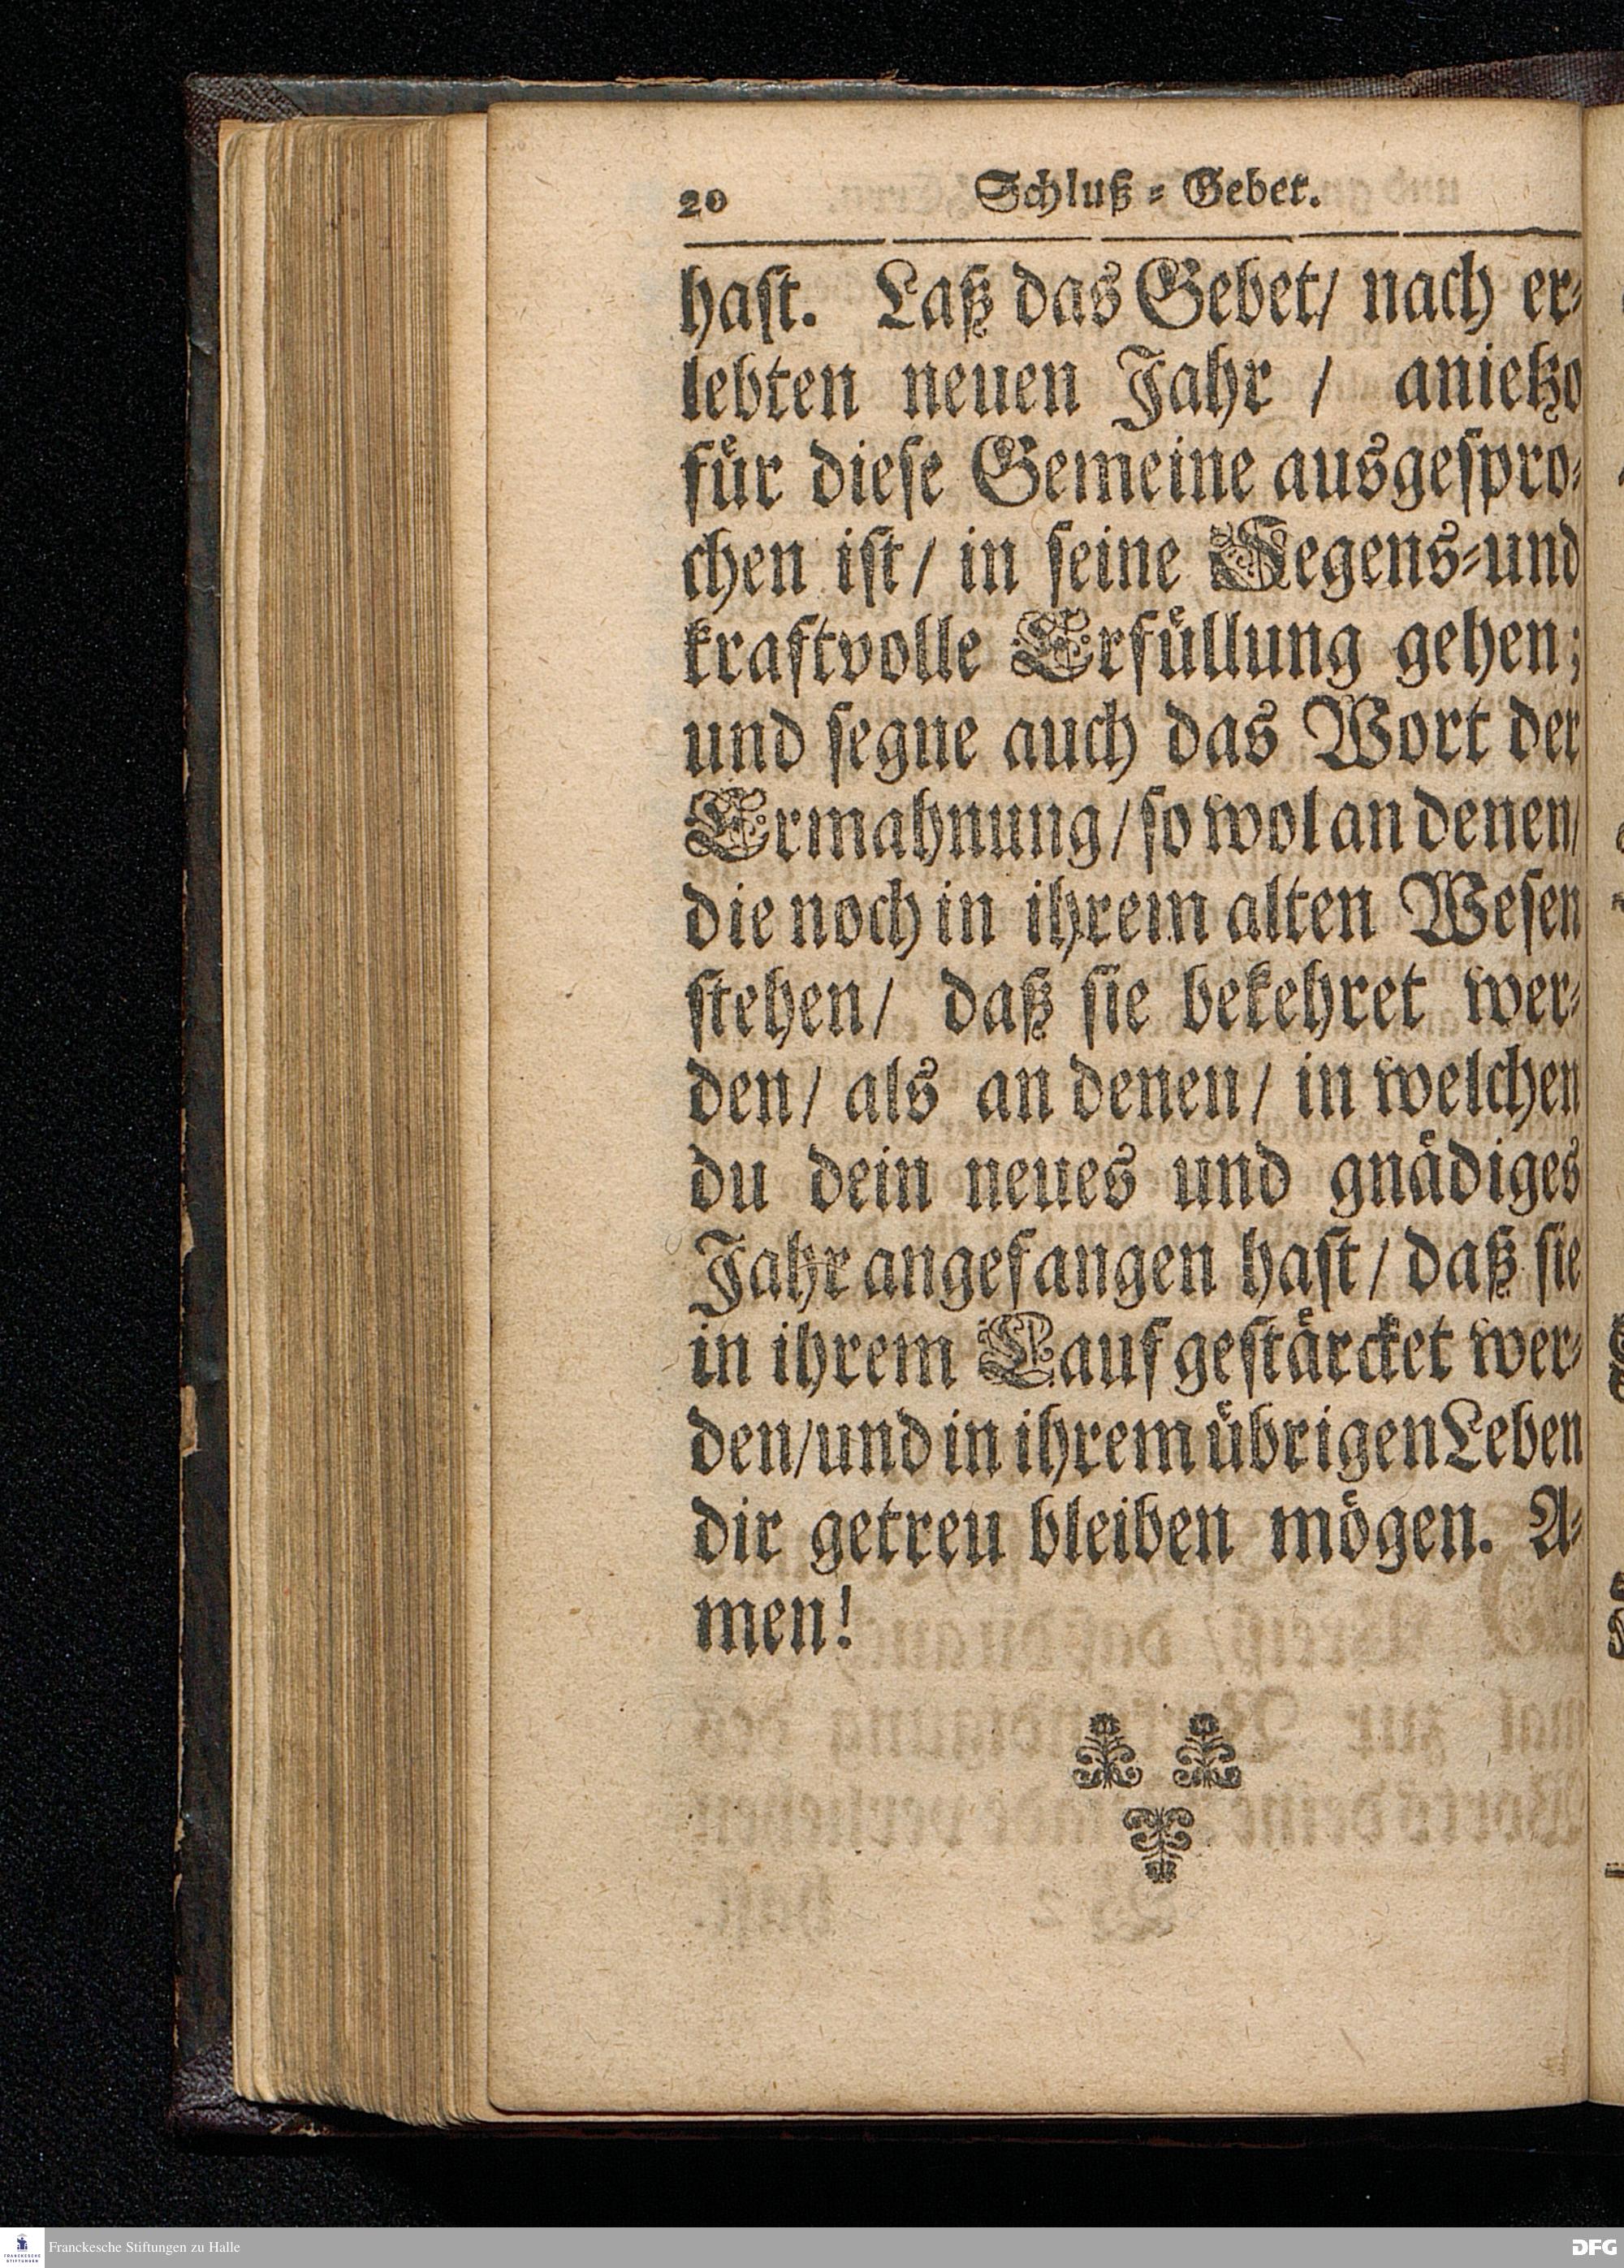 20 Schluß = Gebet.
hast. Laß das Gebet/ nach er=
lebten neuen Jahr / anietzo
für diese Gemeine ausgespro=
chen ist/ in seine Segens=und
kraftvolle Erfüllung gehen;
und segne auch das Wort der
Ermahnung/ so wol an denen/
die noch in ihrem alten Wesen
stehen/ daß sie bekehret wer=
den/ als an denen/ in welchen
du dein neues und gnädiges
Jahr angefangen hast/ daß sie
in ihrem Lauf gestärcket wer=
den/ und in ihrem übrigen Leben
dir getreu bleiben mögen. A=
men!
FRANCKESCHE STIFTUNGEN
Franckesche Stiftungen zu Halle
DFG